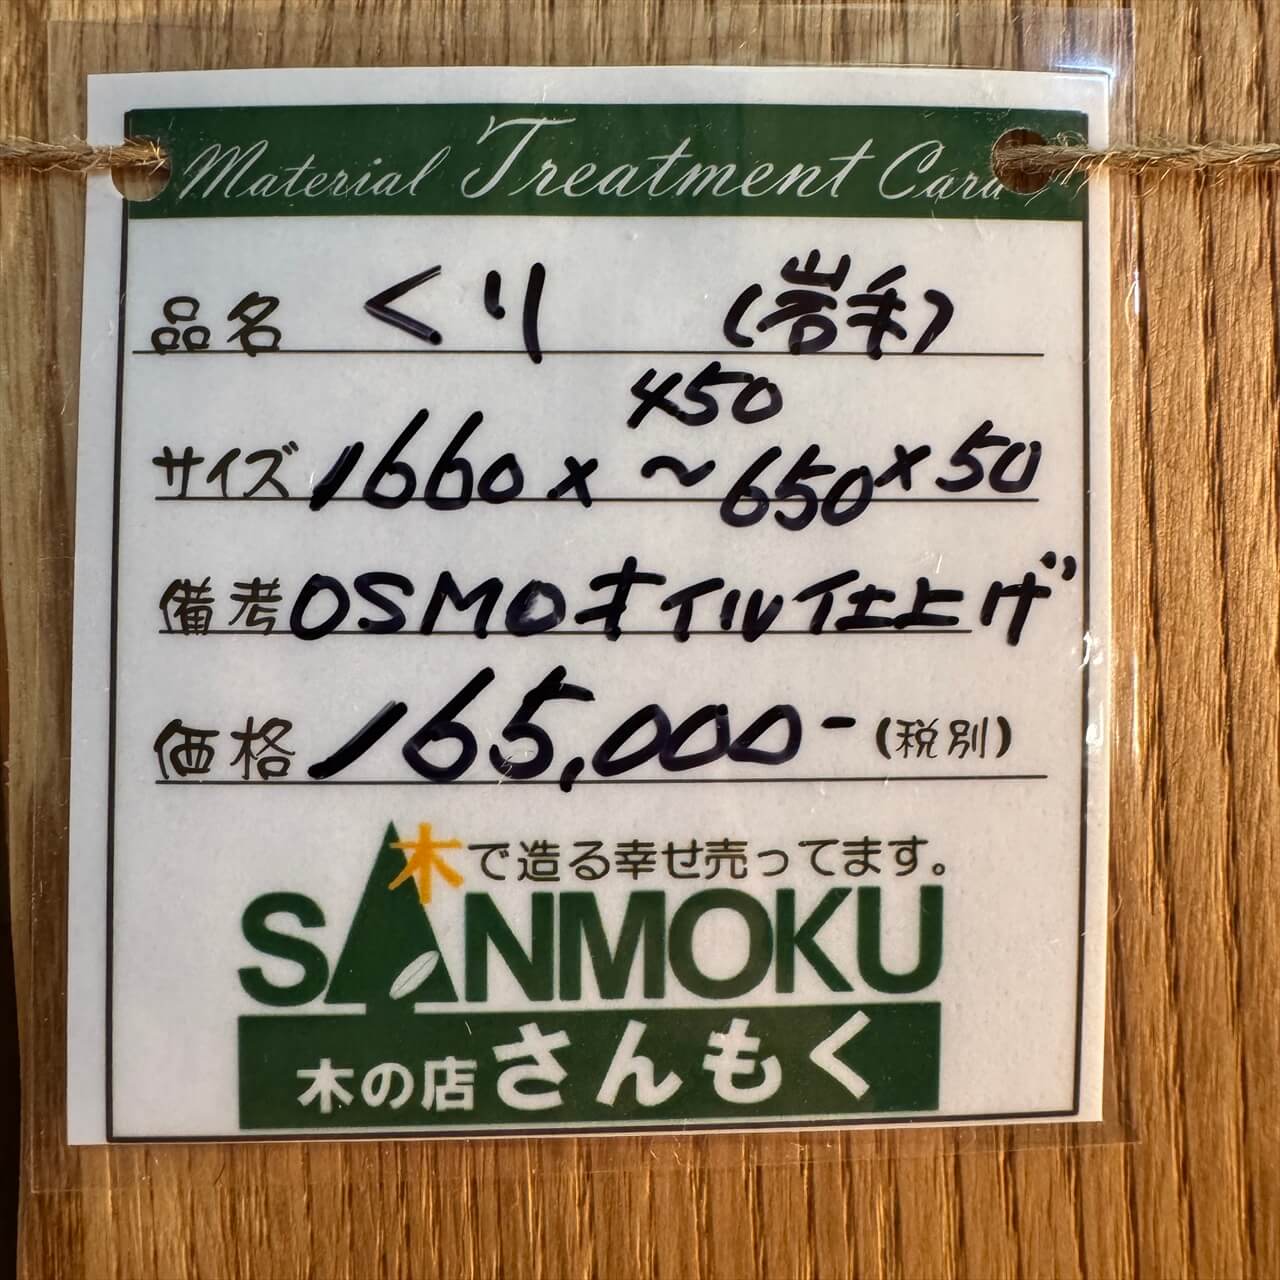 Material Treatment Card
品名 くり (岩手)
450
サイズ 1660 × ～650×50
備考 OSMOオイル仕上げ
価格 165,000- (税別)
木で造る幸せ売ってます。
SANMOKU
木の店 さんもく